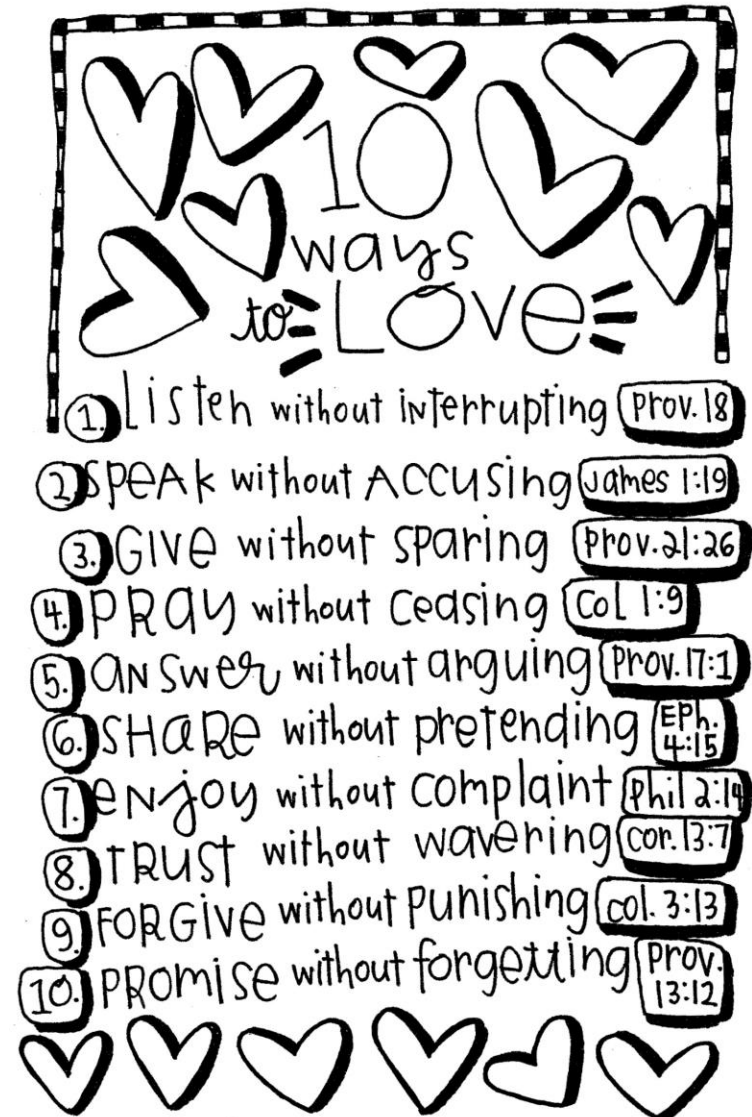 10
ways
to LOVE
1. Listen without interrupting Prov. 18
2. Speak without Accusing James 1:19
3. GIVe without sparing Prov. 21:26
4. PRay without ceasing Col 1:9
5. aNswer without arguing Prov. 17:1
6. SHaRe without pretending EPh. 4:15
7. eNjoy without complaint Phil 2:14
8. TRUST without wavering cor. 13:7
9. FORGive without punishing col. 3:13
10. PROmise without forgetting Prov. 13:12